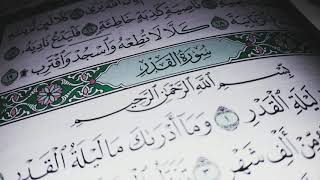 نَاصِيَةٍ كَٰذِبَةٍ خَاطِئَةٍ فَلْيَدْعُ نَادِيَهُۥ
كَلَّا لَا تُطِعْهُ وَٱسْجُدْ وَٱقْتَرِب
سُورَةُ الْقَدْرِ
بِسْمِ ٱللَّهِ ٱلرَّحْمَٰنِ ٱلرَّحِيمِ
لَيْلَةِ ٱلْقَدْرِ ١ وَمَآ أَدْرَىٰكَ مَا لَيْلَةُ ٱلْقَدْرِ
مِّنْ أَلْفِ شَهْرٍ ٣